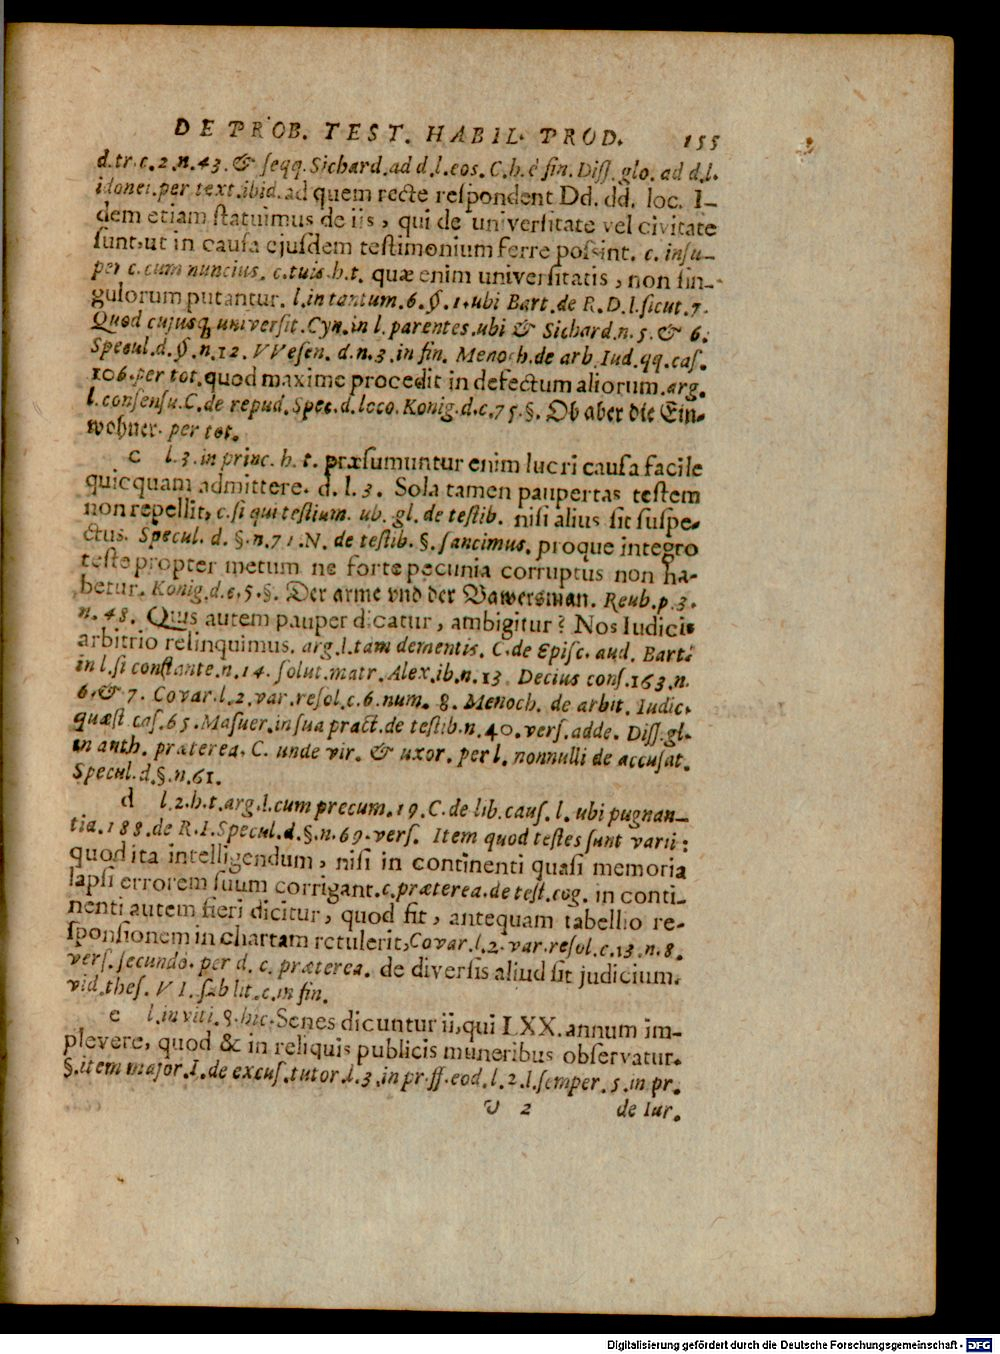 DE PROB. TEST. HABIL. PROD. 155
d.tr.c.2.n.43.& seqq.Sichard.ad d.l.eos.C.h.è fin.Diss.glo.ad d.l.
idonei.per text.ibid.ad quem recte respondent Dd. dd. loc. I-
dem etiam statuimus de iis, qui de universitate vel civitate
sunt,ut in causa ejusdem testimonium ferre possint. c. insu-
per c.cum nuncius. c.tuis.h.t. quæ enim universitatis, non sin-
gulorum putantur. l.in tantum.6.§.1.ubi Bart.de R.D.l.sicut.7.
Quod cujusq; universit.Cyn.in l.parentes.ubi & Sichard.n.5.& 6.
Specul.d.§.n.12.VVesen.d.n.3.in fin. Menoch.de arb.Iud.qq.cas.
106.per tot.quod maxime procedit in defectum aliorum.arg.
l.consensu.C.de repud.Spec.d.loco.Konig.d.c.75.§. Ob aber die Ein-
wohner. per tot.
c l.3.in princ.h.t. præsumuntur enim lucri causa facile
quicquam admittere. d.l.3. Sola tamen paupertas testem
non repellit, c.si qui testium. ub.gl.de testib. nisi alius sit suspe-
ctus. Specul. d. §.n.71.N. de testib. §. sancimus. proque integro
teste propter metum ne forte pecunia corruptus non ha-
betur. Konig.d.c.5.§. Der arme vnd der Bawersman. Reub.p.3.
n.48. Quis autem pauper dicatur, ambigitur? Nos Iudicis
arbitrio relinquimus. arg.l.tam dementis. C.de Episc. aud. Bart.
in l.si constante.n.14.solut.matr.Alex.ib.n.13. Decius cons.163.n.
6.& 7. Covar.l.2.var.resol.c.6.num.8. Menoch. de arbit. Iudic.
quæst.cas.65.Masuer.in sua pract.de testib.n.40.vers.adde. Diss.gl.
in anth. præterea. C. unde vir. & uxor. per l. nonnulli de accusat.
Specul.d.§.n.61.
d l.2.h.t.arg.l.cum precum.19.C.de lib.caus.l.ubi pugnan-
tia.188.de R.I.Specul.d.§.n.69.vers. Item quod testes sunt varii:
quod ita intelligendum, nisi in continenti quasi memoria
lapsi errorem suum corrigant.c.præterea.de test.cog. in conti-
nenti autem fieri dicitur, quod fit, antequam tabellio re-
sponsionem in chartam retulerit,Covar.l.2.var.resol.c.13.n.8.
vers.secundo. per d. c. præterea. de diversis aliud sit judicium.
vid.thes. VI. sub lit.c.in fin.
e l.inviti.§.hic.Senes dicuntur ii,qui LXX. annum im-
plevere, quod & in reliquis publicis muneribus observatur.
§.item major.I.de excus.tutor.l.3.in pr.ff.eod.l.2.l.semper.5.in pr.
V 2 de Iur.
Digitalisierung gefördert durch die Deutsche Forschungsgemeinschaft - DFG